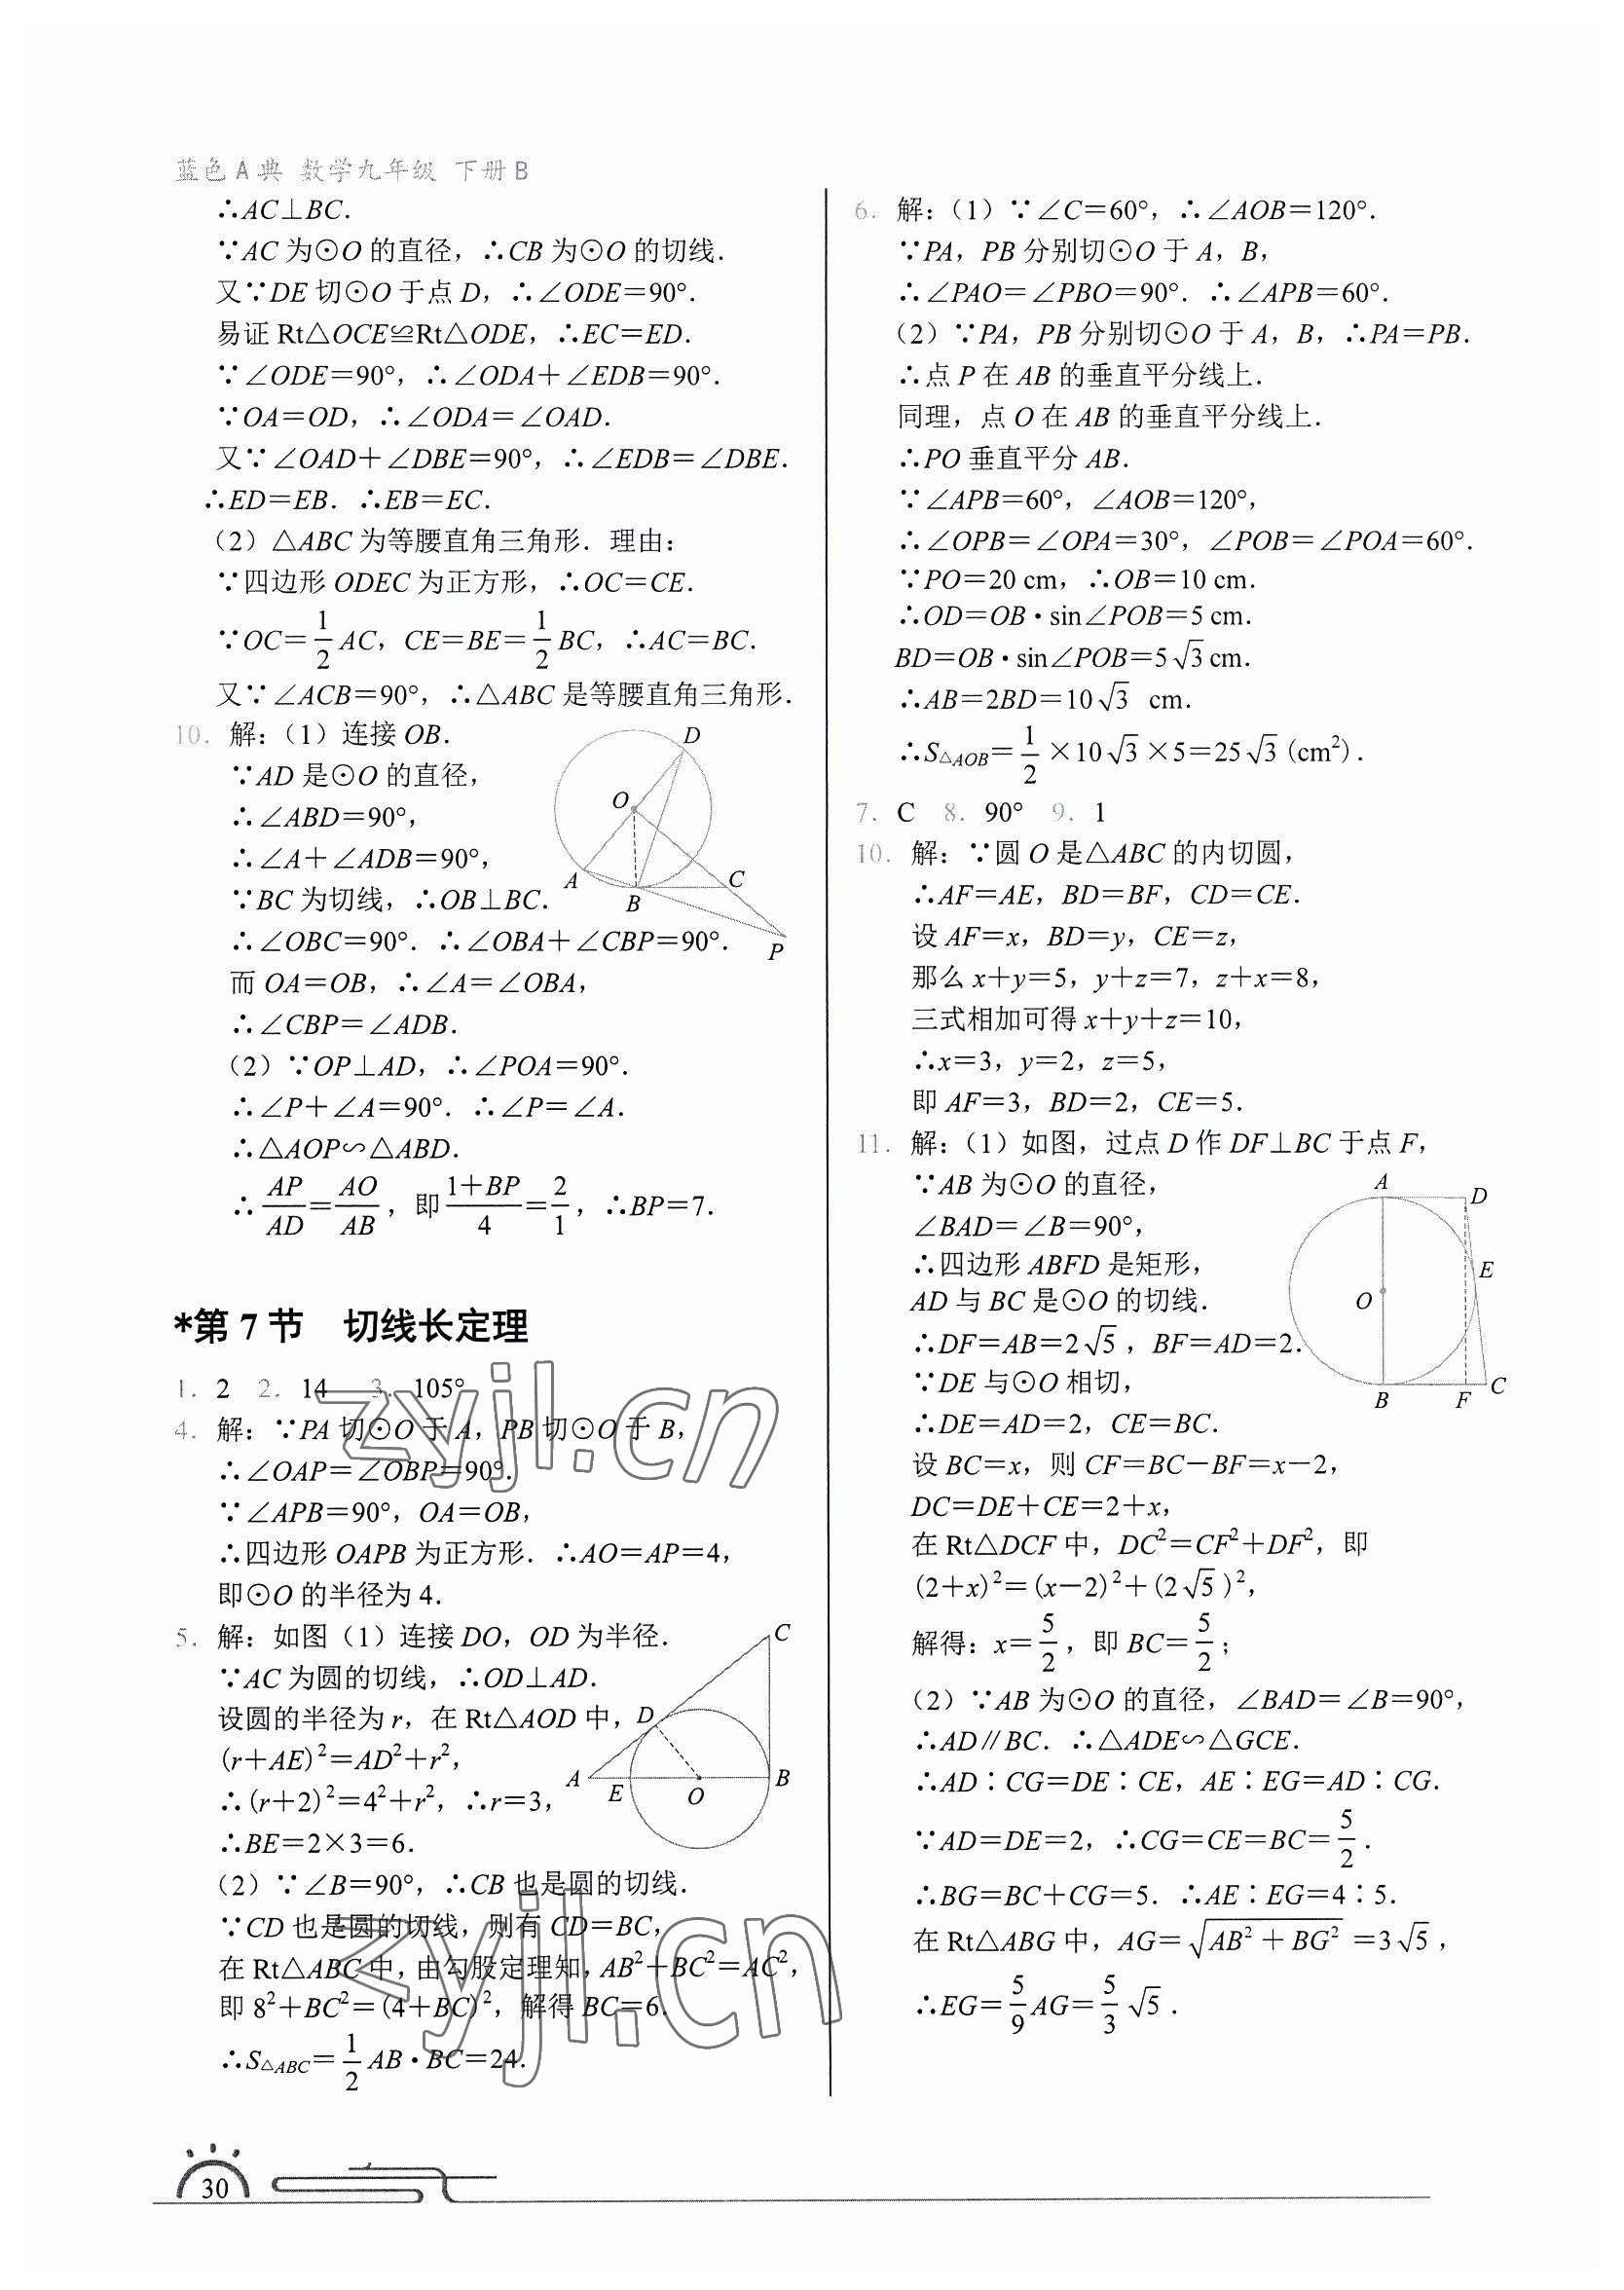 蓝色A典 数学九年级 下册B
∴AC⊥BC.
∵AC为⊙O的直径，∴CB为⊙O的切线.
又∵DE切⊙O于点D，∴∠ODE=90°.
易证Rt△OCE≌Rt△ODE，∴EC=ED.
∵∠ODE=90°，∴∠ODA+∠EDB=90°.
∵OA=OD，∴∠ODA=∠OAD.
又∵∠OAD+∠DBE=90°，∴∠EDB=∠DBE.
∴ED=EB. ∴EB=EC.
(2) △ABC为等腰直角三角形. 理由：
∵四边形ODEC为正方形，∴OC=CE.
∵OC=1/2 AC，CE=BE=1/2 BC，∴AC=BC.
又∵∠ACB=90°，∴△ABC是等腰直角三角形.
10. 解：(1) 连接OB.
∵AD是⊙O的直径，
∴∠ABD=90°，
∴∠A+∠ADB=90°，
∵BC为切线，∴OB⊥BC.
∴∠OBC=90°. ∴∠OBA+∠CBP=90°.
而OA=OB，∴∠A=∠OBA，
∴∠CBP=∠ADB.
(2) ∵OP⊥AD，∴∠POA=90°.
∴∠P+∠A=90°. ∴∠P=∠A.
∴△AOP∽△ABD.
∴AP/AD=AO/AB，即(1+BP)/4=2/1，∴BP=7.
D
O
A
B
C
P
*第7节 切线长定理
1. 2 2. 14 3. 105°
4. 解：∵PA切⊙O于A，PB切⊙O于B，
∴∠OAP=∠OBP=90°.
∵∠APB=90°，OA=OB，
∴四边形OAPB为正方形. ∴AO=AP=4，
即⊙O的半径为4.
5. 解：如图(1)连接DO，OD为半径.
∵AC为圆的切线，∴OD⊥AD.
设圆的半径为r，在Rt△AOD中，
(r+AE)²=AD²+r²，
∴(r+2)²=4²+r²，∴r=3，
∴BE=2×3=6.
(2) ∵∠B=90°，∴CB也是圆的切线.
∵CD也是圆的切线，则有CD=BC，
在Rt△ABC中，由勾股定理知，AB²+BC²=AC²，
即8²+BC²=(4+BC)²，解得BC=6.
∴S△ABC=1/2 AB·BC=24.
C
D
A
E
O
B
6. 解：(1) ∵∠C=60°，∴∠AOB=120°.
∵PA，PB分别切⊙O于A，B，
∴∠PAO=∠PBO=90°. ∴∠APB=60°.
(2) ∵PA，PB分别切⊙O于A，B，∴PA=PB.
∴点P在AB的垂直平分线上.
同理，点O在AB的垂直平分线上.
∴PO垂直平分AB.
∵∠APB=60°，∠AOB=120°，
∴∠OPB=∠OPA=30°，∠POB=∠POA=60°.
∵PO=20 cm，∴OB=10 cm.
∴OD=OB·sin∠POB=5 cm.
BD=OB·sin∠POB=5√3 cm.
∴AB=2BD=10√3 cm.
∴S△AOB=1/2×10√3×5=25√3(cm²).
7. C 8. 90° 9. 1
10. 解：∵圆O是△ABC的内切圆，
∴AF=AE，BD=BF，CD=CE.
设AF=x，BD=y，CE=z，
那么x+y=5，y+z=7，z+x=8，
三式相加可得x+y+z=10，
∴x=3，y=2，z=5，
即AF=3，BD=2，CE=5.
11. 解：(1) 如图，过点D作DF⊥BC于点F，
∵AB为⊙O的直径，
∠BAD=∠B=90°，
∴四边形ABFD是矩形，
AD与BC是⊙O的切线.
∴DF=AB=2√5，BF=AD=2.
∵DE与⊙O相切，
∴DE=AD=2，CE=BC.
设BC=x，则CF=BC−BF=x−2，
DC=DE+CE=2+x，
在Rt△DCF中，DC²=CF²+DF²，即
(2+x)²=(x−2)²+(2√5)²，
解得：x=5/2，即BC=5/2；
(2) ∵AB为⊙O的直径，∠BAD=∠B=90°，
∴AD∥BC. ∴△ADE∽△GCE.
∴AD∶CG=DE∶CE，AE∶EG=AD∶CG.
∵AD=DE=2，∴CG=CE=BC=5/2.
∴BG=BC+CG=5. ∴AE∶EG=4∶5.
在Rt△ABG中，AG=√(AB²+BG²)=3√5，
∴EG=5/9 AG=5/3 √5.
A
D
E
O
B
F
C
zyjl.cn
zyjl.cn
30